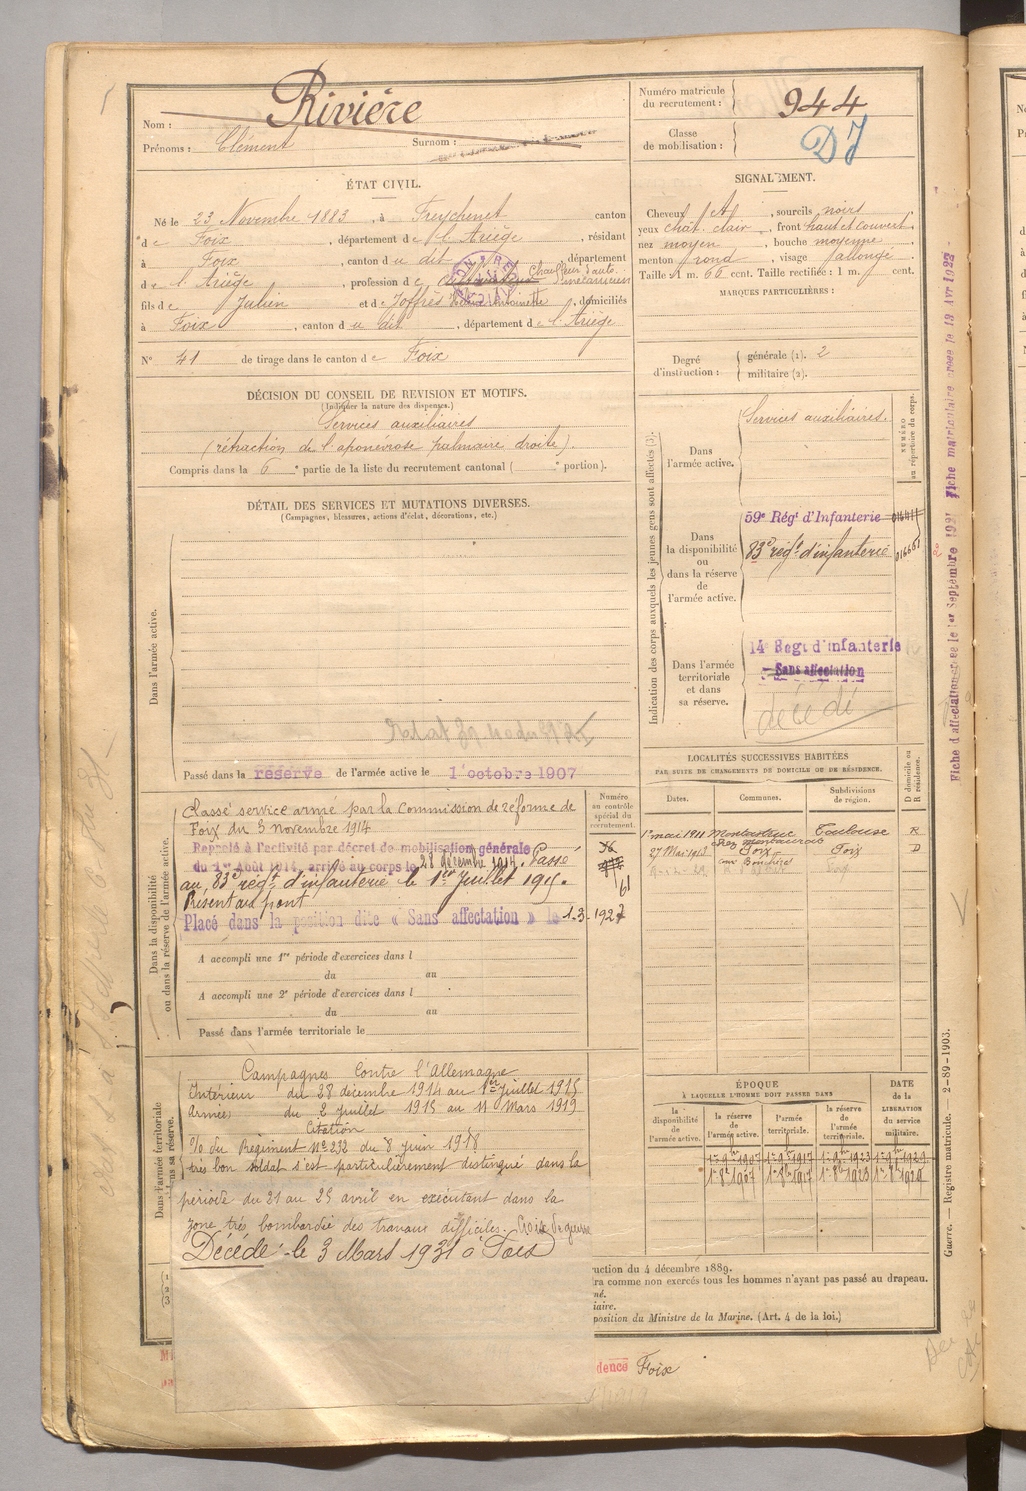 Rivière
Nom :
Prénoms : Clément Surnom :
Numéro matricule du recrutement : 944
Classe de mobilisation :
DJ
ÉTAT CIVIL.
Né le 23 Novembre 1883, à Freychenet canton
de Foix, département de l'Ariège, résidant
à Foix, canton du dit, département
de l'Ariège, profession de Chauffeur d'auto.
fils de Julien et de Joffrès Antoinette, domiciliés
à Foix, canton du dit, département de l'Ariège
N° 41 de tirage dans le canton de Foix
SIGNALEMENT.
Cheveux, sourcils noirs
yeux chât. clair, front haut et couvert
nez moyen, bouche moyenne
menton rond, visage allongé
Taille : 1 m. 66 cent. Taille rectifiée : 1 m. cent.
MARQUES PARTICULIÈRES :
Degré d'instruction : générale (1). 2
militaire (2).
DÉCISION DU CONSEIL DE REVISION ET MOTIFS.
(Indiquer la nature des dispenses.)
Services auxiliaires
(rétraction de l'aponévrose palmaire droite).
Compris dans la 6e partie de la liste du recrutement cantonal ( e portion).
DÉTAIL DES SERVICES ET MUTATIONS DIVERSES.
(Campagnes, blessures, actions d'éclat, décorations, etc.)
Dans l'armée active.
Passé dans la réserve de l'armée active le 1er octobre 1907
Indication des corps auxquels les jeunes gens sont affectés (3).
NUMÉRO au répertoire du corps.
Dans l'armée active.
Services auxiliaires.
Dans la disponibilité ou dans la réserve de l'armée active.
59e Régt d'Infanterie
83e régt d'infanterie
Dans l'armée territoriale et dans sa réserve.
14e Régt d'infanterie
Sans affectation
décédé
Dans la disponibilité ou dans la réserve de l'armée active.
Classé service armé par la Commission de réforme de
Foix du 3 novembre 1914
Rappelé à l'activité par décret de mobilisation générale
du 1er Août 1914, arrivé au corps le 28 décembre 1914. Passé
au 83e régt d'infanterie le 1er Juillet 1915.
Présent au front
Placé dans la position dite « Sans affectation » le 1-3-1927
A accompli une 1re période d'exercices dans l
du au
A accompli une 2e période d'exercices dans l
du au
Passé dans l'armée territoriale le
Numéro au contrôle spécial du recrutement.
61
LOCALITÉS SUCCESSIVES HABITÉES
PAR SUITE DE CHANGEMENTS DE DOMICILE OU DE RÉSIDENCE.
Dates. Communes. Subdivisions de région. D domicile ou R résidence.
1er mai 1911 Montastruc Toulouse R
27 Mai 1913 Foix Foix D
ÉPOQUE
À LAQUELLE L'HOMME DOIT PASSER DANS
la disponibilité de l'armée active. la réserve de l'armée active. l'armée territoriale. la réserve de l'armée territoriale.
DATE de la LIBÉRATION du service militaire.
1er 9bre 1907 1er 9bre 1917 1er 9bre 1923 1er 9bre 1929
1er 8bre 1907 1er 8bre 1917 1er 8bre 1923 1er 8bre 1929
Dans l'armée territoriale
dans sa réserve.
Campagnes Contre l'Allemagne
Intérieur du 28 décembre 1914 au 1er Juillet 1915
Armées du 2 Juillet 1915 au 11 Mars 1919
Citation
O/ du Régiment N° 232 du 8 juin 1918
très bon soldat s'est particulièrement distingué dans la
période du 21 au 25 avril en exécutant dans la
zone très bombardée des travaux difficiles. Croix de guerre
Décédé le 3 Mars 1931 à Foix
uction du 4 décembre 1889.
ra comme non exercés tous les hommes n'ayant pas passé au drapeau.
né.
iaire.
position du Ministre de la Marine. (Art. 4 de la loi.)
dence Foix
Guerre. — Registre matricule. — 2-89-1903.
Fiche d'affectation créée le 1er Septembre 1921 Fiche matriculaire créée le 13 Avr 1922